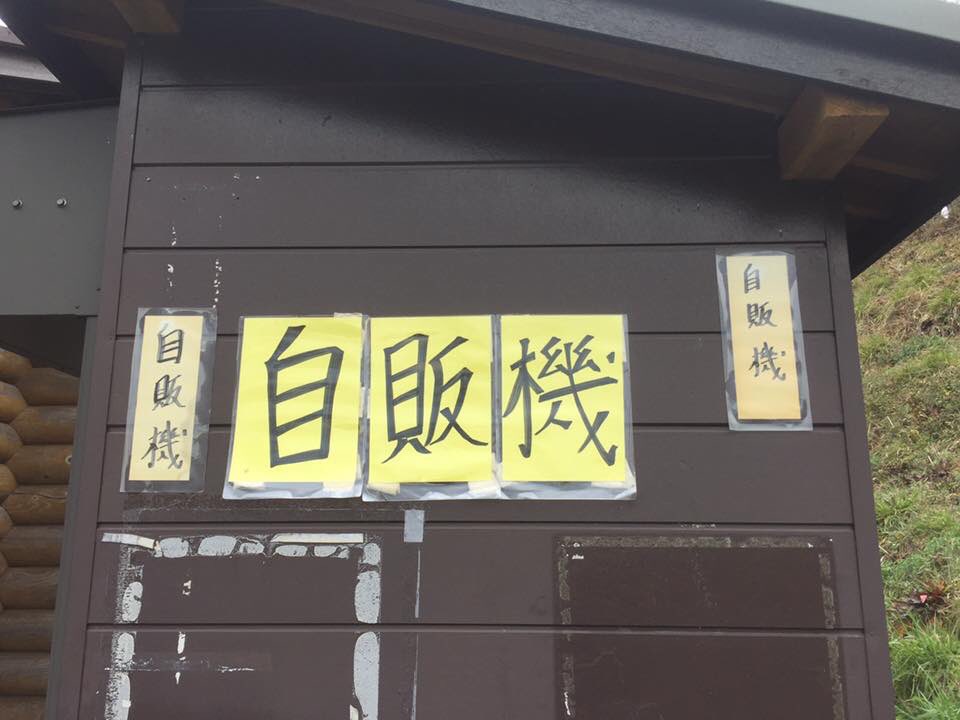 自販機
自販機
自販機